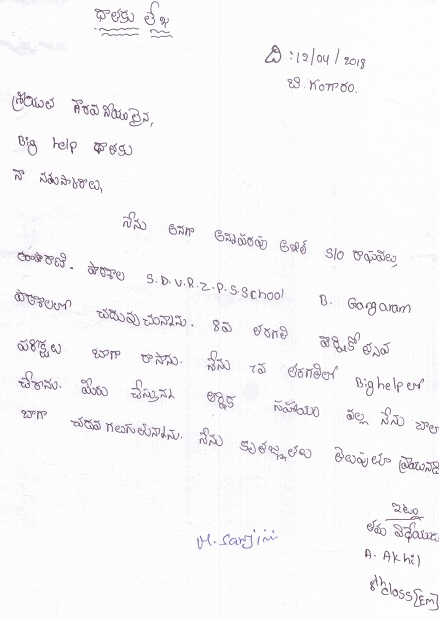 దాతకు లేఖ
ది :12/04/2018
బి.గంగారం.
శ్రీయుత గౌరవనీయులైన,
Big help దాతకు
నా నమస్కారాలు,
నేను అనగా అఖిల్ S/O
S.D.V.R.Z.P.S.School B. Gangaram
పాఠశాలలో చదువుచున్నాను. 8వ తరగతి
పరీక్షలు బాగా రాసాను. నేను 7వ తరగతిలో Big help లో
చేరాను. మీరు చేస్తున్న ఆర్థిక సహాయం వల్ల నేను చాలా
బాగా చదువ గలుగుతున్నాను. నేను కృతజ్ఞతలు తెలుపుతూ
ఇట్లు
తమ విధేయుడు
A. Akhil
8th class [EM]